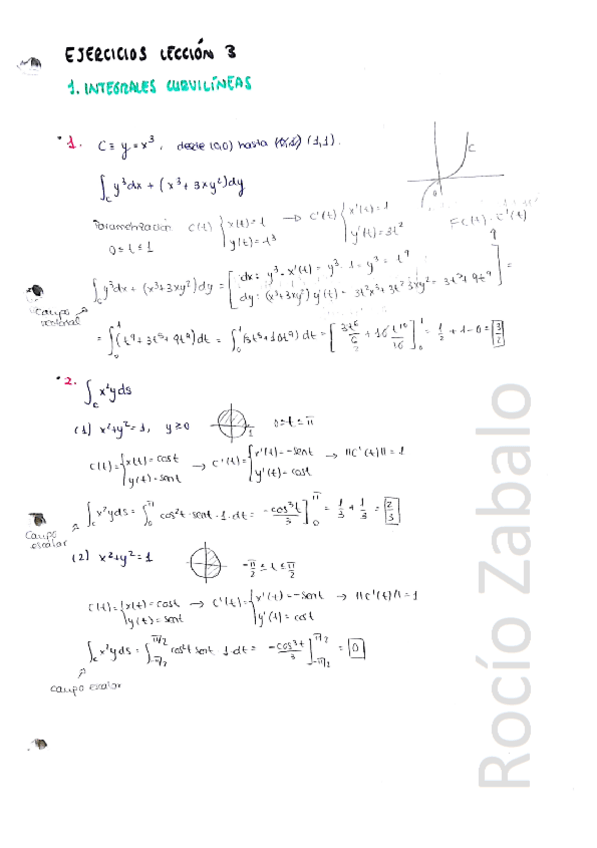 EJERCICIOS LECCIÓN 3
1. INTEGRALES CURVILÍNEAS
* 1. C ≡ y = x³, desde (0,0) hasta (1,1).
∫_C y³dx + (x³ + 3xy²)dy
Parametrización C(t) { x(t) = t y(t) = t³ → C'(t) { x'(t) = 1 y'(t) = 3t² F(t) · C'(t)
0 ≤ t ≤ 1
∫_C y³dx + (x³+3xy²)dy = [ dx: y³ · x'(t) = y³ · 1 = y³ = t⁹
dy: (x³+3xy²) y'(t) = 3t²x³ + 3t² 3xy² = 3t⁵ + 9t⁹ ] =
campo vectorial
= ∫₀¹ (t⁹ + 3t⁵ + 9t⁹)dt = ∫₀¹ (3t⁵ + 10t⁹) dt = [ 3t⁶/6 + 10 t¹⁰/10 ]₀¹ = 1/2 + 1 - 0 = 3/2
* 2. ∫_C x²y ds
(1) x²+y² = 1, y ≥ 0 0 ≤ t ≤ π
C(t) = { x(t) = cost y(t) = sent → C'(t) = { x'(t) = -sent y'(t) = cost → ||C'(t)|| = 1
∫_C x²y ds = ∫₀^π cos²t · sent · 1 · dt = -cos³t/3 ]₀^π = 1/3 + 1/3 = 2/3
campo escalar
(2) x²+y² = 1 -π/2 ≤ t ≤ π/2
C(t) = { x(t) = cost y(t) = sent → C'(t) = { x'(t) = -sent y'(t) = cost → ||C'(t)|| = 1
∫_C x²y ds = ∫_{-π/2}^{π/2} cos²t sent · 1 · dt = -cos³t/3 ]_{-π/2}^{π/2} = 0
campo escalar
Rocío Zabalo